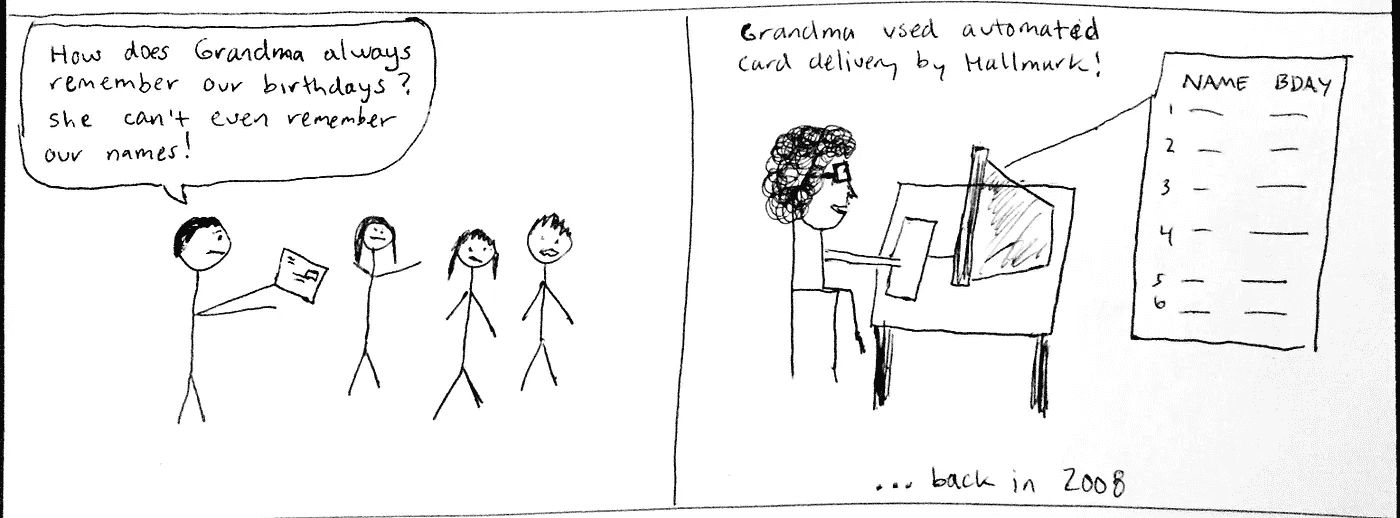 How does Grandma always
remember our birthdays?
she can't even remember
our names!
Grandma used automated
card delivery by Hallmark!
NAME BDAY
1
2
3
4
5
6
... back in 2008